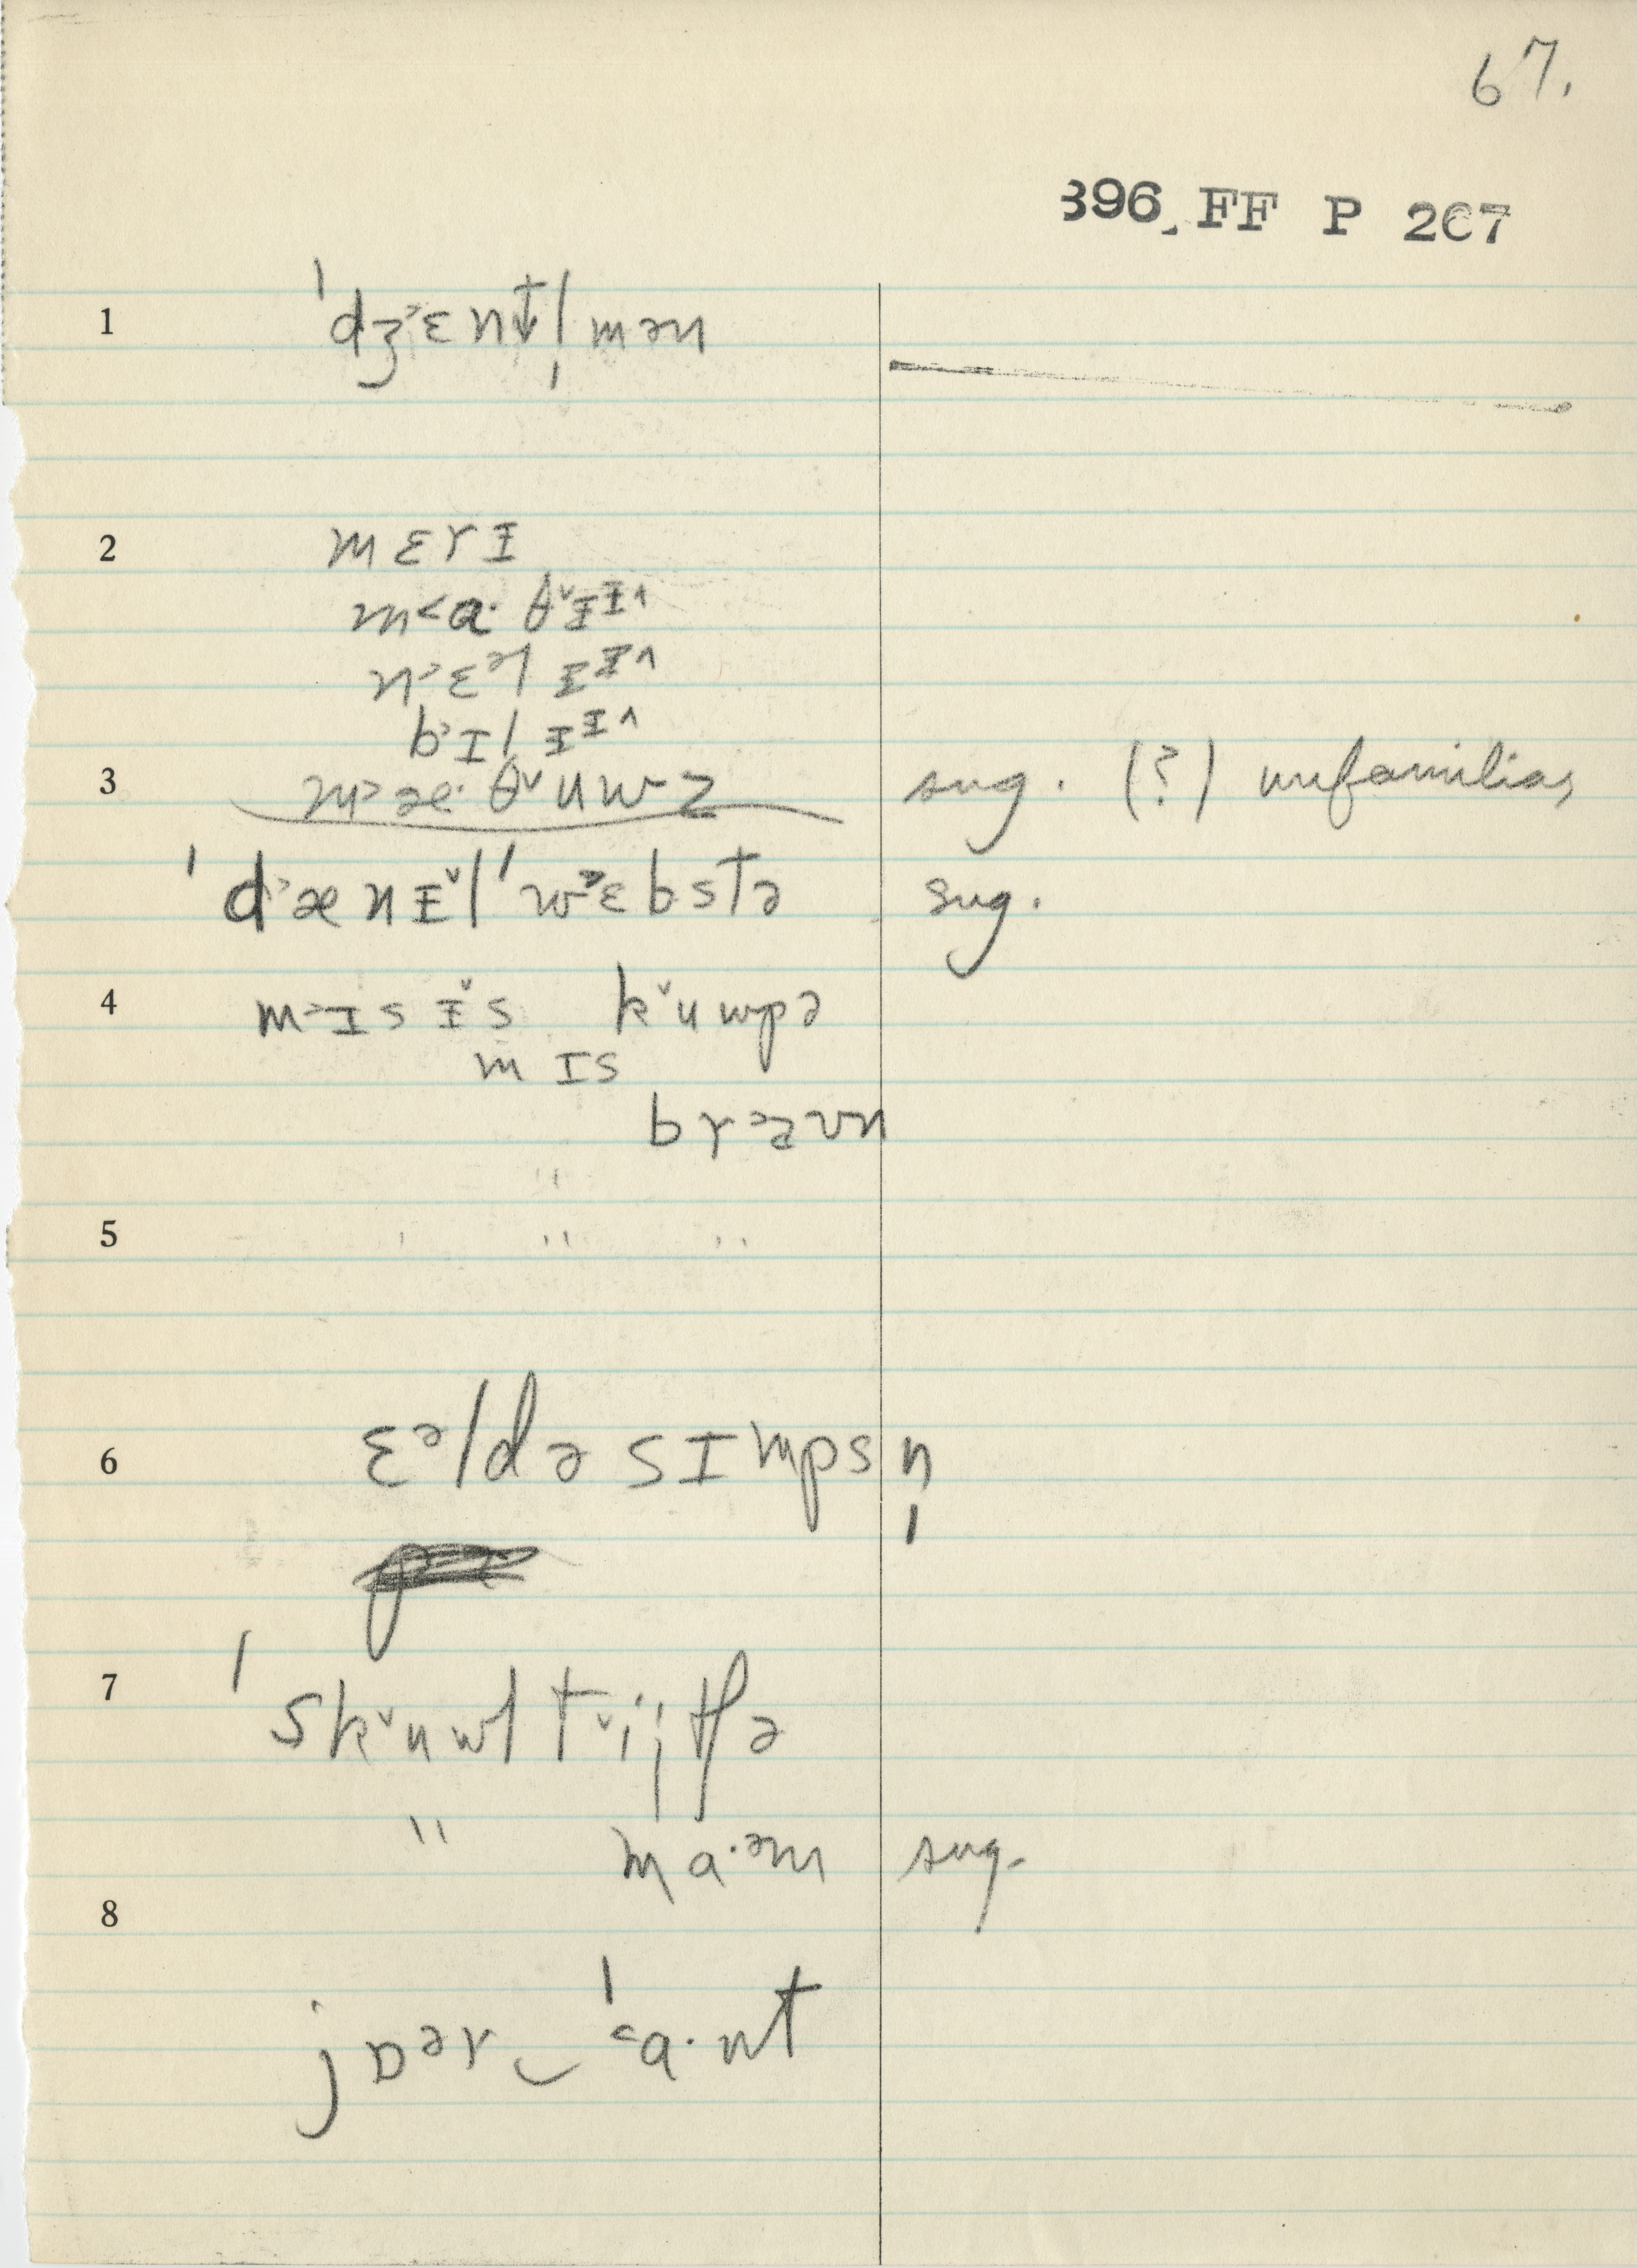 67.
396 FF P 267
1 ˈdʒ˃ɛntl̩mən
2 mɛrɪ
m˂a·θ˅ɪɪ˄
n˃ɛᵊlɪɪ˄
b˃ɪlɪɪ˄
3 m˃æ·θ˅uwz sug. (?) unfamiliar
ˈd˃ænɪ˅lˈw˃ɛbstə sug.
4 m˃ɪsɪ˅s k˅uwpə
mɪs
br˃aʊn
"
5 ' " "
6 ɛᵊldə sɪmpsn̩
7 ˈsk˅uwl t˅ijtʃə
" ma·ᵊm sug.
8
jɒᵊr‿ˈ˂a·nt